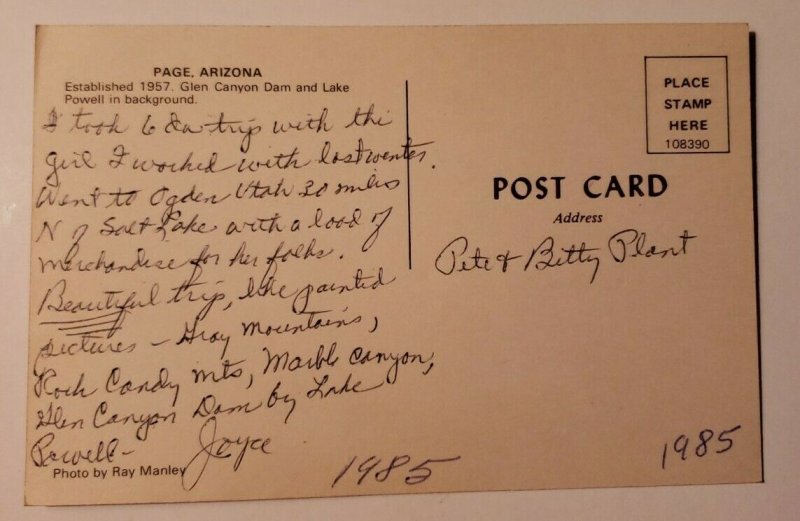 PAGE, ARIZONA
Established 1957. Glen Canyon Dam and Lake
Powell in background.
I took 6 da trip with the
girl I worked with last winter.
Went to Ogden Utah 30 miles
N of Salt Lake with a load of
merchandise for her folks.
Beautiful trip, like painted
pictures - Gray Mountains,
Rock Candy mts, Marble Canyon,
Glen Canyon Dam by Lake
Powell-
Joyce
Photo by Ray Manley
1985
PLACE
STAMP
HERE
108390
POST CARD
Address
Pete & Betty Plant
1985